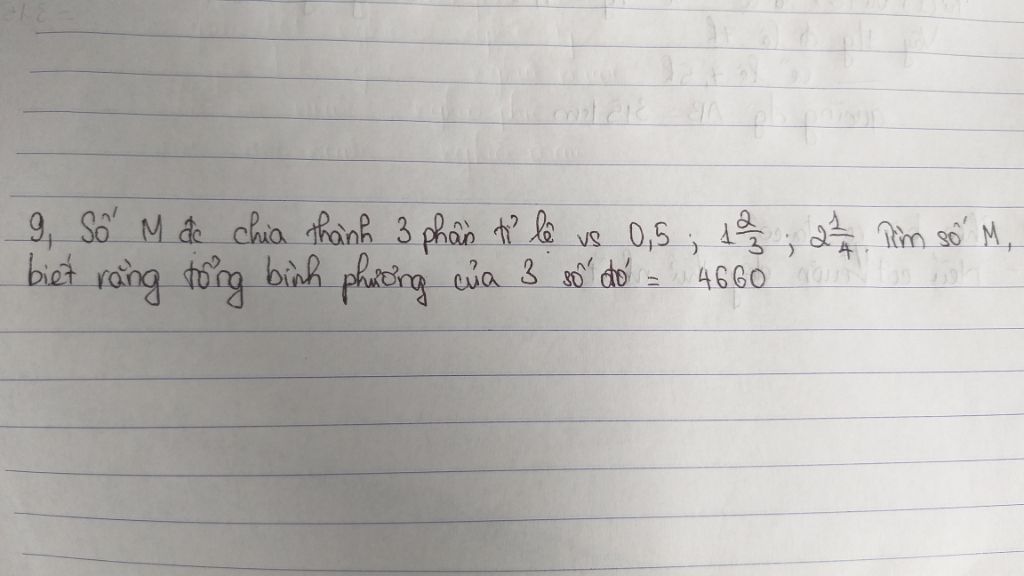 9, Số M đc chia thành 3 phần tỉ lệ vs 0,5 ; 1 2/3 , 2 1/4. Tìm số M,
biết rằng tổng bình phương của 3 số đó = 4660